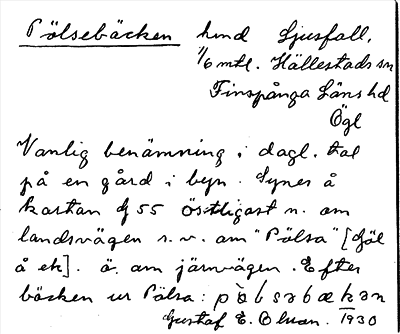 Pölsebäcken hmd Ljusfall,
1/6 mtl. Hällestads sn
Finspånga läns hd
Ögl
Vanlig benämning i dagl. tal
på en gård i byn. Synes å
kartan Gf 55 östligast n. om
landsvägen s.v. om "Pölsa" [Göl
å ek]. ö. om järnvägen. Efter
bäcken ur Pölsa: 
Gustaf E. Olsson. 1930